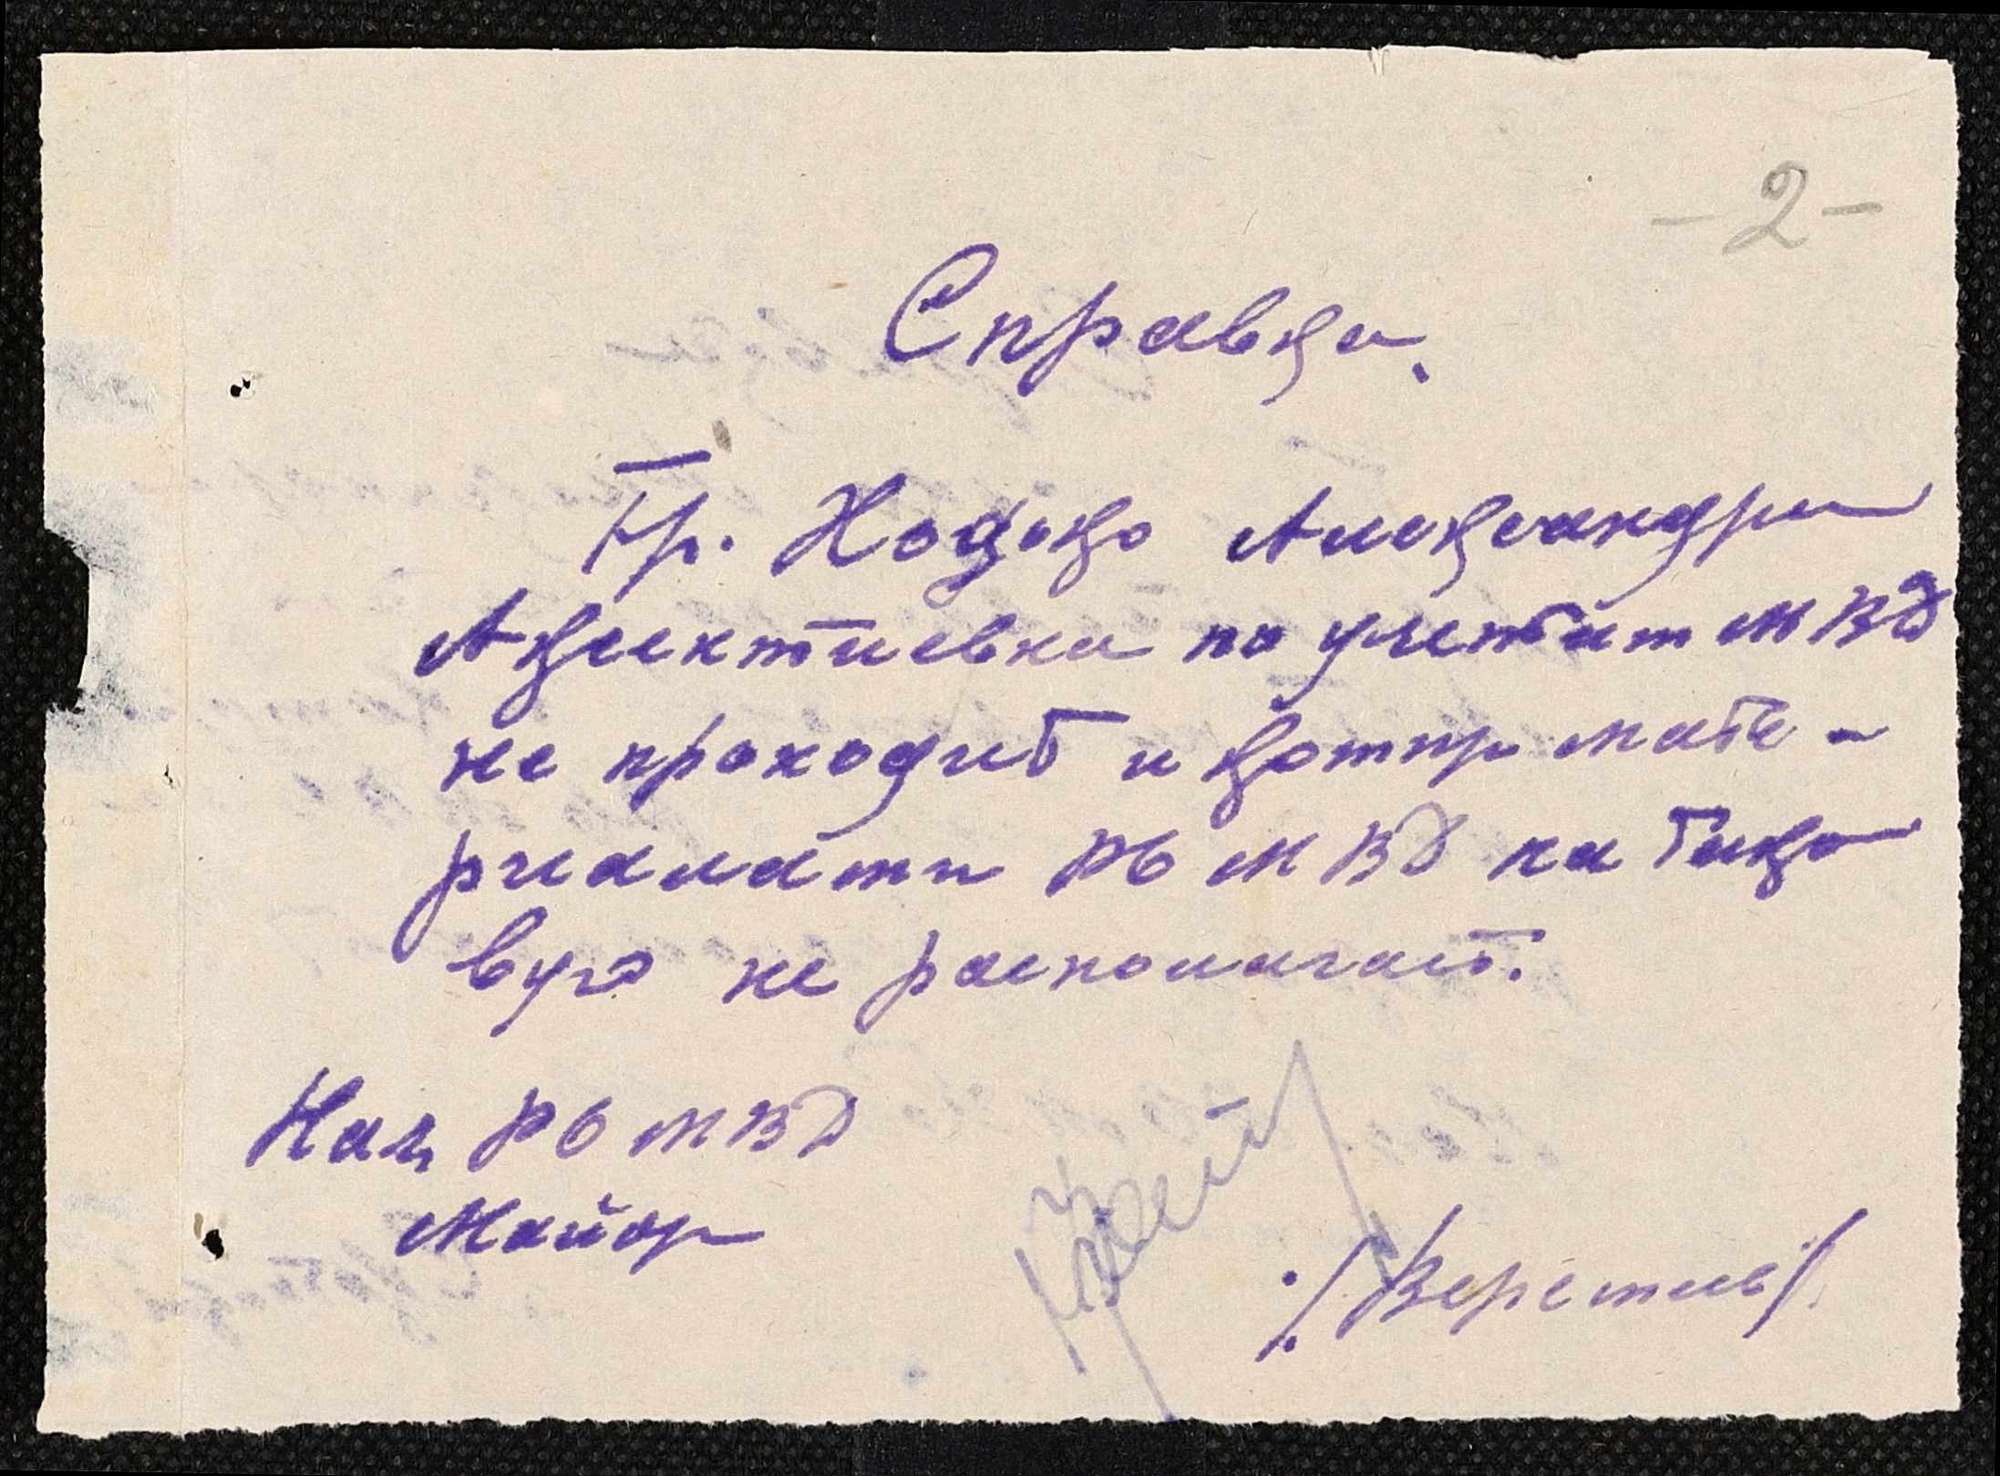 -2-
Справка.
Гр. Ходько Александра
Аксентиевна по учетам МВД
не проходит и компр мате-
риалати РО МВД на тако
вую не располагает.
Нач РО МВД
Майор
/